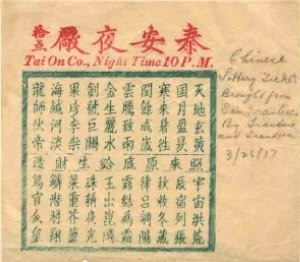 泰安夜廠
拾点
Tai On Co., Night Time 10 P.M.
天地玄黃
日月盈昃
寒來暑往
閏餘成歲
雲騰致雨
金生麗水
劍號巨闕
果珍李柰
海咸河淡
龍師伙帝
照來原底給生財造
宇宙洪荒
辰宿列張
秋收冬藏
律呂調陽
露結為霜
玉出崑岡
珠稱夜光
菜重芥薑
鱗潛羽翔
鳥官人皇
Chinese
Lottery Ticket
Brought from
San Francisco
By Grandma
and Grandpa
3/26/17